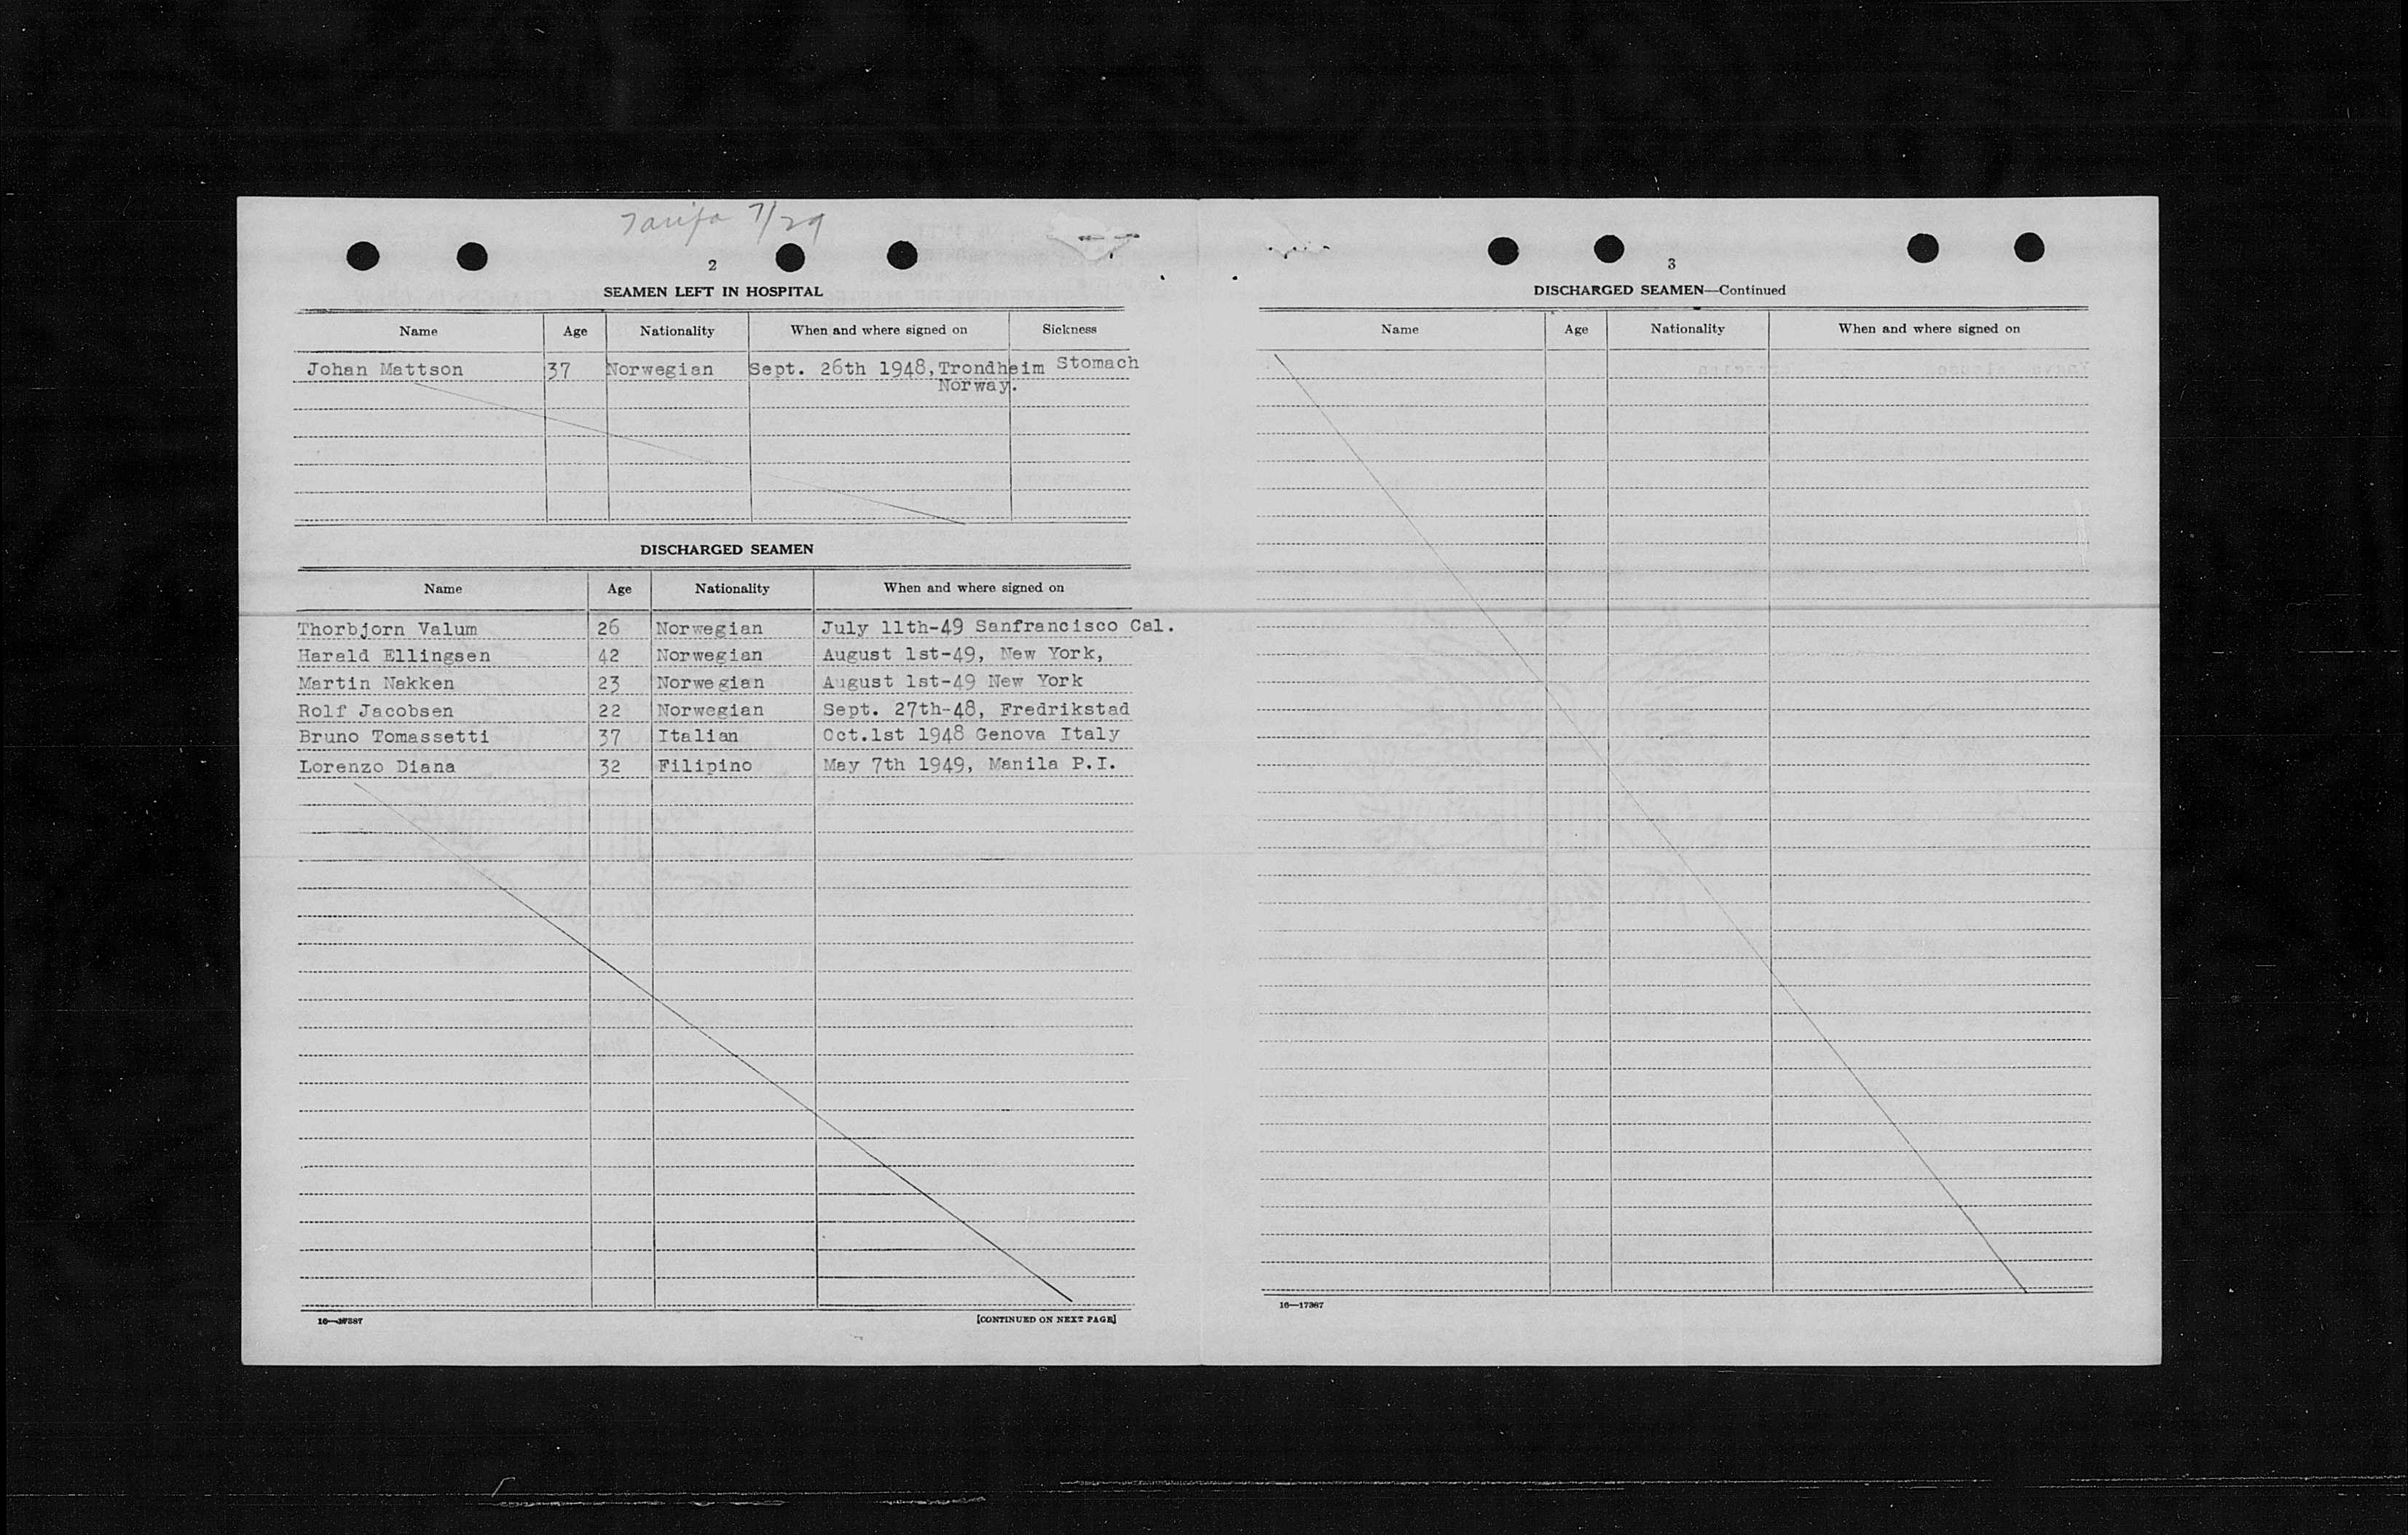 Tarifa 7/29
2
SEAMEN LEFT IN HOSPITAL
Name Age Nationality When and where signed on Sickness
Johan Mattson 37 Norwegian Sept. 26th 1948, Trondheim Stomach
Norway.
DISCHARGED SEAMEN
Name Age Nationality When and where signed on
Thorbjorn Valum 26 Norwegian July 11th-49 Sanfrancisco Cal.
Harald Ellingsen 42 Norwegian August 1st-49, New York,
Martin Nakken 23 Norwegian August 1st-49 New York
Rolf Jacobsen 22 Norwegian Sept. 27th-48, Fredrikstad
Bruno Tomassetti 37 Italian Oct.1st 1948 Genova Italy
Lorenzo Diana 32 Filipino May 7th 1949, Manila P.I.
16—17387 [CONTINUED ON NEXT PAGE]
3
DISCHARGED SEAMEN—Continued
Name Age Nationality When and where signed on
16—17387